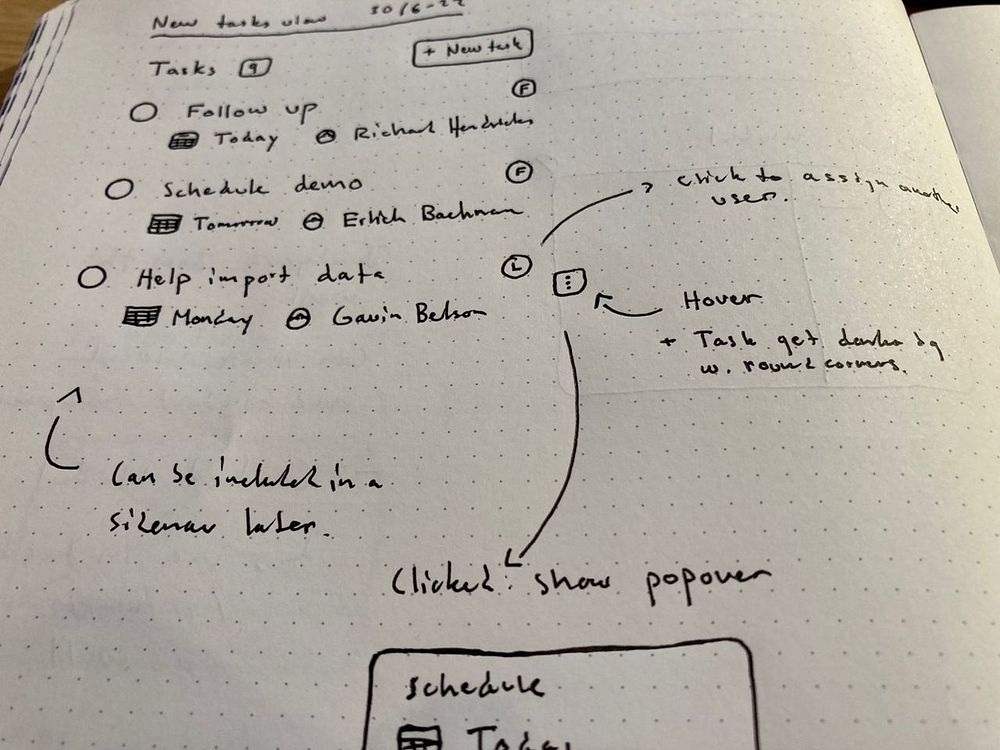 New tasks view 30/6-22
Tasks 9
+ New task
F
Follow up
Today Richard Hendricks
F
Schedule demo
Tomorrow Erlich Bachman
L
Help import data
Monday Gavin Belson
Click to assign another
user.
Hover
+ Task get darker bg
w. round corners.
Can be included in a
sidenav later.
Clicked: show popover
Schedule
Today